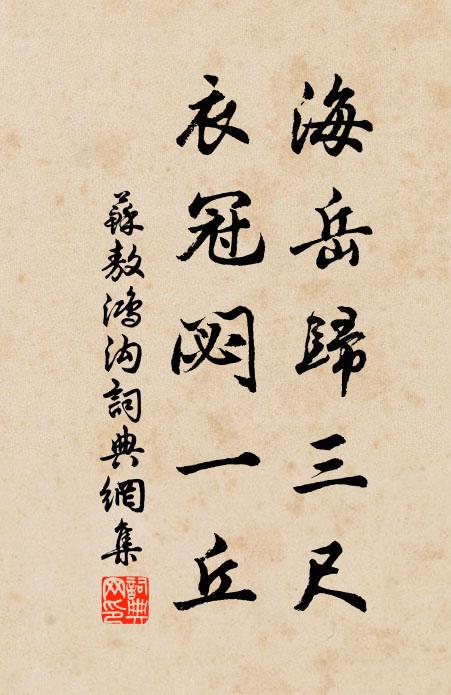 海岳歸三尺
衣冠閟一丘
蘇教鴻沟詞典網集
詞典網印